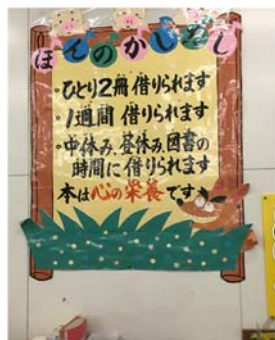 ほんのかしだし
・ひとり2冊 借りられます
・1週間 借りられます
・中休み、昼休み、図書の
時間に借りられます
本は心の栄養です